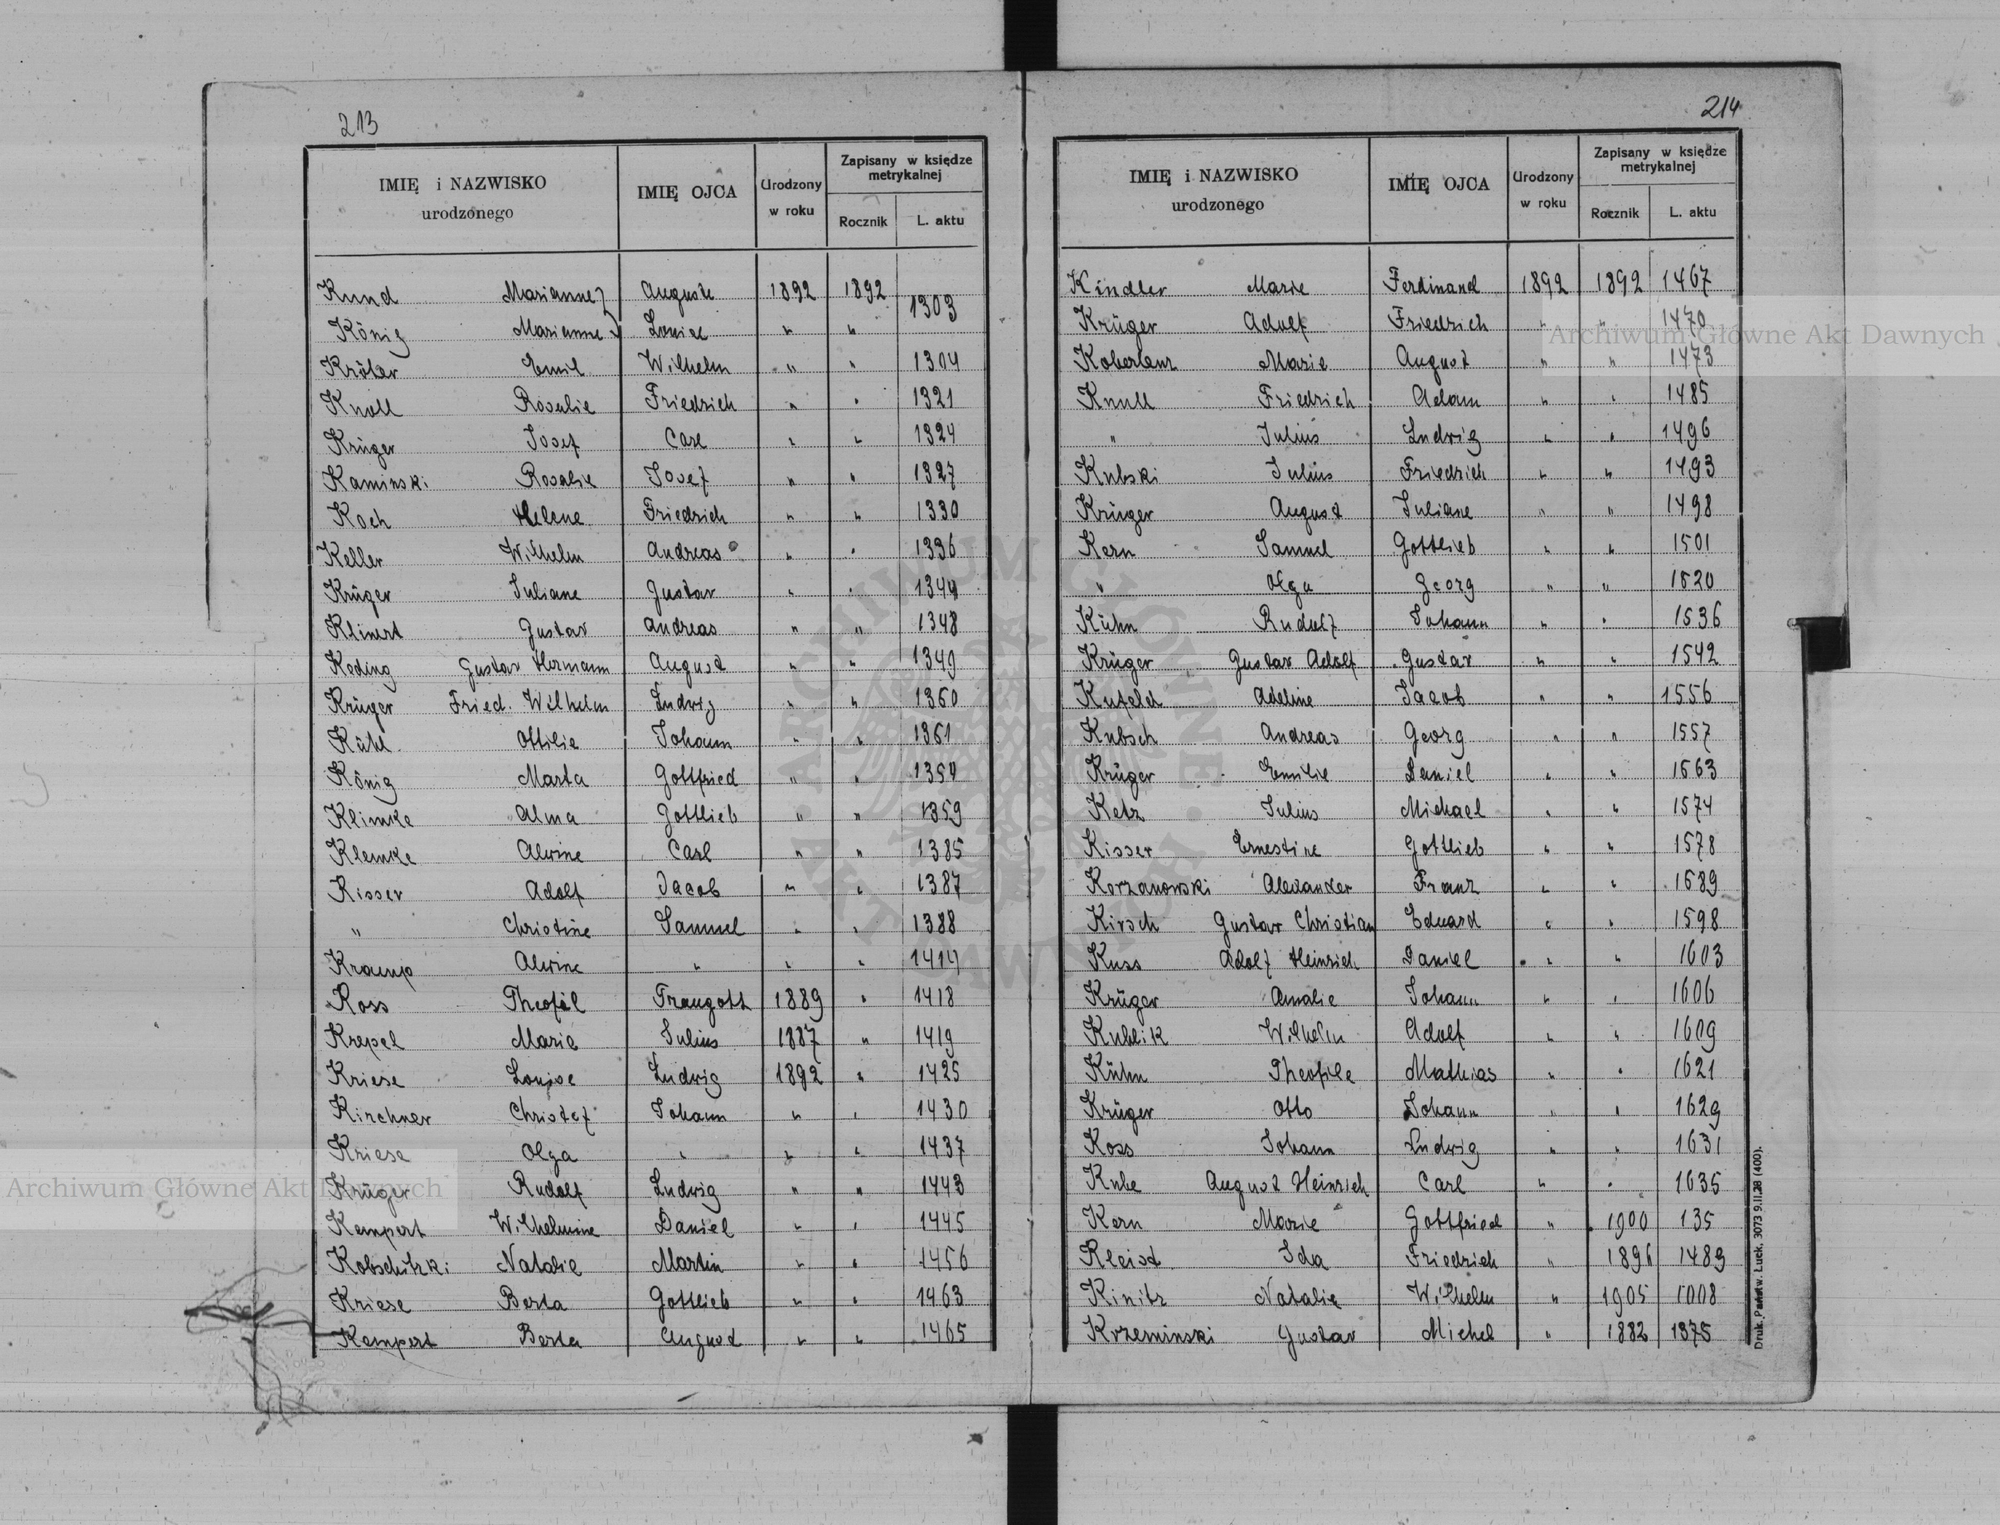 213
IMIĘ i NAZWISKO urodzonego | IMIĘ OJCA | Urodzony w roku | Zapisany w księdze metrykalnej
Rocznik | L. aktu
Kund Marianne } Auguste 1892 1892 1303
König Marianne } Louise " "
Kröter Emil Wilhelm " " 1304
Knoll Rosalie Friedrich " " 1321
Krüger Josef Carl " " 1324
Kaminski Rosalie Josef " " 1327
Koch Helene Friedrich " " 1330
Keller Wilhelm Andreas " " 1336
Krüger Juliane Gustav " " 1344
Klinert Gustav Andreas " " 1348
Keding Gustav Hermann August " " 1349
Krüger Fried. Wilhelm Ludwig " " 1360
Kühl Ottilie Johann " " 1361
König Marta Gottfried " " 1354
Klimke Alma Gottlieb " " 1359
Klemke Alwine Carl " " 1385
Kisser Adolf Jacob " " 1387
" Christine Samuel " " 1388
Kramp Alwine " " " 1414
Koss Theofil Traugott 1889 " 1418
Krepel Marie Julius 1887 " 1419
Kriese Louise Ludwig 1892 " 1425
Kirchner Christof Johann " " 1430
Kriese Olga " " " 1437
Krüger Rudolf Ludwig " " 1443
Kempert Wilhelmine Daniel " " 1445
Kobschitzki Natalie Martin " " 1456
Kriese Berta Gottlieb " " 1463
Kempert Berta August " " 1465
214
IMIĘ i NAZWISKO urodzonego | IMIĘ OJCA | Urodzony w roku | Zapisany w księdze metrykalnej
Rocznik | L. aktu
Kindler Marie Ferdinand 1892 1892 1467
Krüger Adolf Friedrich " " 1470
Koberlenz Marie August " " 1473
Knull Friedrich Adam " " 1485
" Julius Ludwig " " 1496
Kubski Julius Friedrich " " 1493
Krüger August Juliane " " 1498
Kern Samuel Gottlieb " " 1501
" Olga Georg " " 1520
Kühn Rudolf Johann " " 1536
Krüger Gustav Adolf Gustav " " 1542
Kufeld Adeline Jacob " " 1556
Kubsch Andreas Georg " " 1557
Krüger Emilie Daniel " " 1563
Ketz Julius Michael " " 1574
Kisser Ernestine Gottlieb " " 1578
Korzanowski Alexander Franz " " 1589
Kirsch Gustav Christian Eduard " " 1598
Kuss Adolf Heinrich Daniel " " 1603
Krüger Amalie Johann " " 1606
Kublik Wilhelm Adolf " " 1609
Kühn Theofile Mathias " " 1621
Krüger Otto Johann " " 1629
Koss Johann Ludwig " " 1631
Kube August Heinrich Carl " " 1635
Kern Marie Gottfried " 1900 135
Kleist Ida Friedrich " 1896 1489
Kinitz Natalie Wilhelm " 1905 1008
Krzeminski Gustav Michel " 1882 1375
Druk. Państw. Łuck. 3073 9.II.28 (400).
Archiwum Główne Akt Dawnych
Archiwum Główne Akt Dawnych
ARCHIWUM GŁÓWNE AKT DAWNYCH